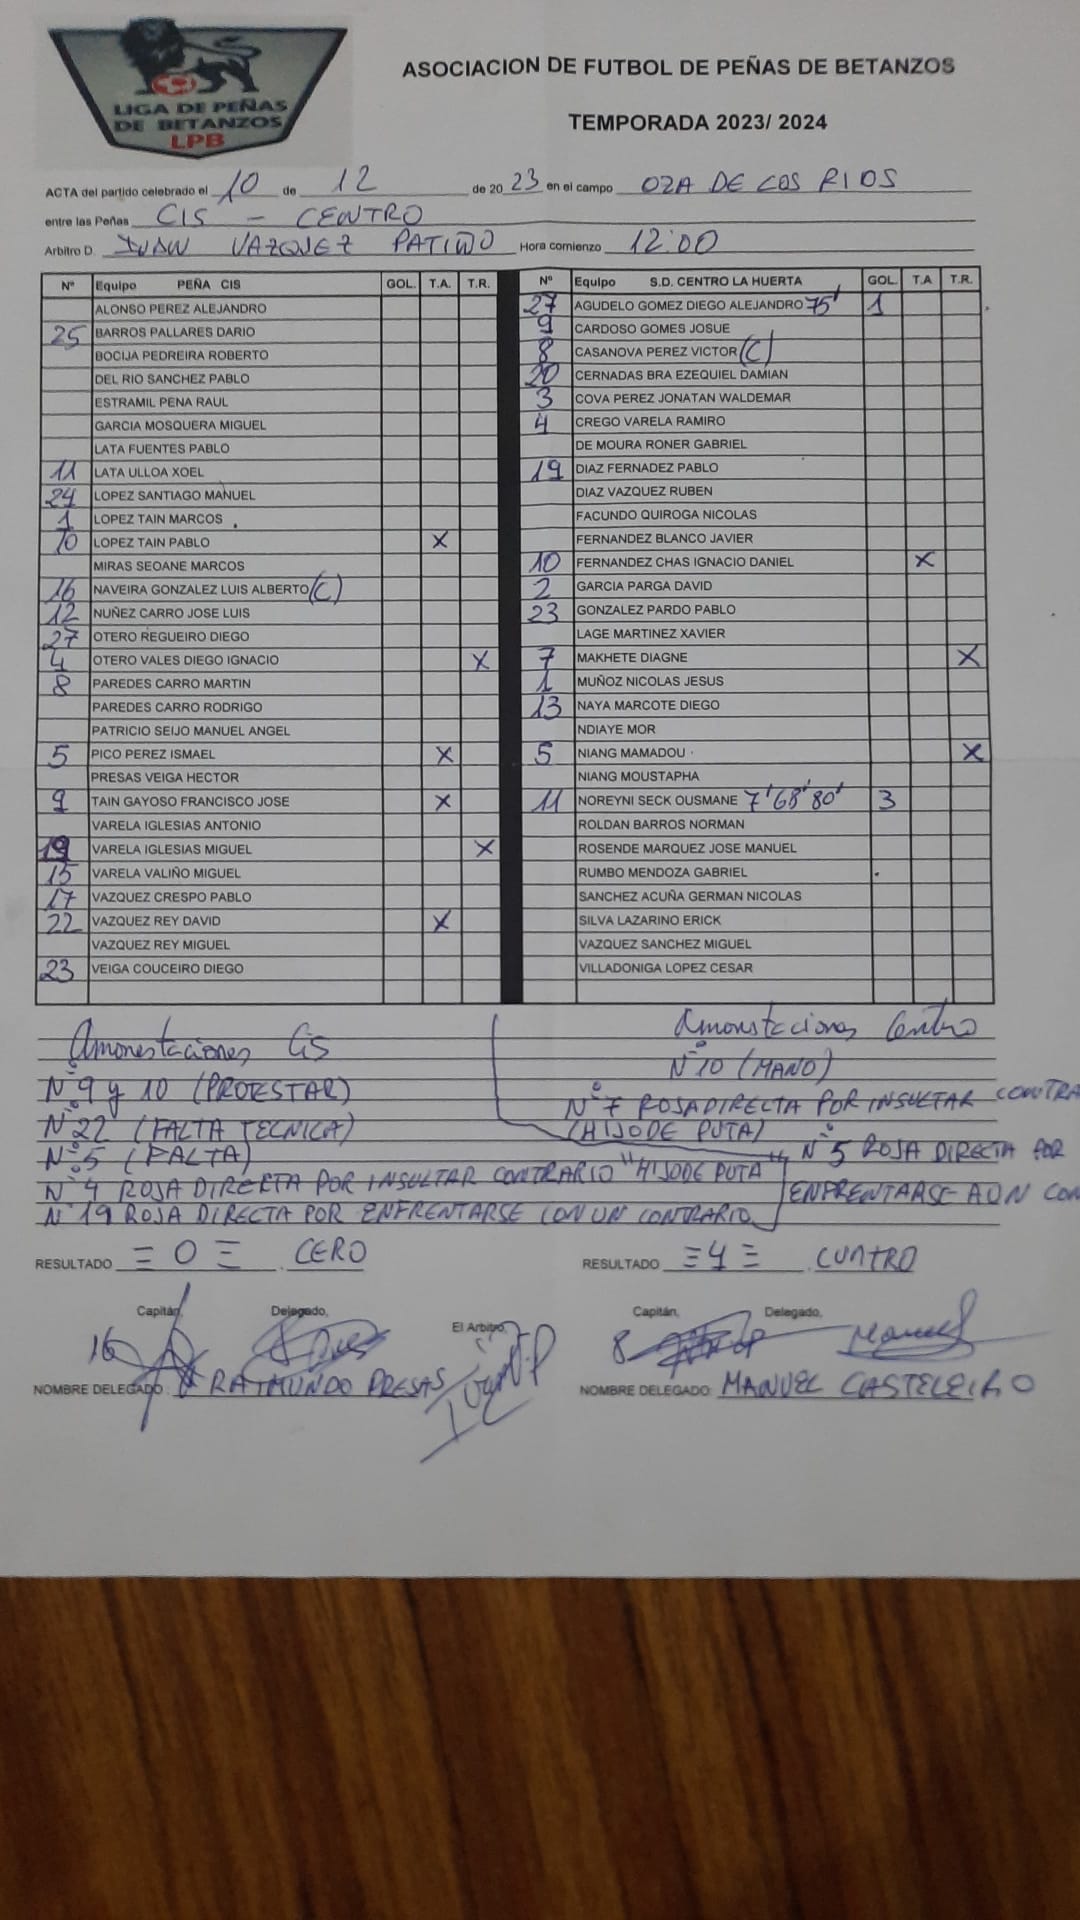 LIGA DE PEÑAS
DE BETANZOS
LPB
ASOCIACION DE FUTBOL DE PEÑAS DE BETANZOS
TEMPORADA 2023/ 2024
ACTA del partido celebrado el 10 de 12 de 20 23 en el campo OZA DE LOS RIOS
entre las Peñas CIS - CENTRO
Arbitro D. IVAN VAZQUEZ PATIÑO Hora comienzo 12:00
Nº Equipo PEÑA CIS GOL. T.A. T.R. Nº Equipo S.D. CENTRO LA HUERTA GOL. T.A T.R.
ALONSO PEREZ ALEJANDRO 27 AGUDELO GOMEZ DIEGO ALEJANDRO 75' 1
25 BARROS PALLARES DARIO 9 CARDOSO GOMES JOSUE
BOCIJA PEDREIRA ROBERTO 8 CASANOVA PEREZ VICTOR (C)
DEL RIO SANCHEZ PABLO 20 CERNADAS BRA EZEQUIEL DAMIAN
ESTRAMIL PENA RAUL 3 COVA PEREZ JONATAN WALDEMAR
GARCIA MOSQUERA MIGUEL 4 CREGO VARELA RAMIRO
LATA FUENTES PABLO DE MOURA RONER GABRIEL
11 LATA ULLOA XOEL 19 DIAZ FERNADEZ PABLO
24 LOPEZ SANTIAGO MANUEL DIAZ VAZQUEZ RUBEN
1 LOPEZ TAIN MARCOS FACUNDO QUIROGA NICOLAS
10 LOPEZ TAIN PABLO X FERNANDEZ BLANCO JAVIER
MIRAS SEOANE MARCOS 10 FERNANDEZ CHAS IGNACIO DANIEL X
16 NAVEIRA GONZALEZ LUIS ALBERTO (C) 2 GARCIA PARGA DAVID
12 NUÑEZ CARRO JOSE LUIS 23 GONZALEZ PARDO PABLO
27 OTERO REGUEIRO DIEGO LAGE MARTINEZ XAVIER
4 OTERO VALES DIEGO IGNACIO X 7 MAKHETE DIAGNE X
8 PAREDES CARRO MARTIN 1 MUÑOZ NICOLAS JESUS
PAREDES CARRO RODRIGO 13 NAYA MARCOTE DIEGO
PATRICIO SEIJO MANUEL ANGEL NDIAYE MOR
5 PICO PEREZ ISMAEL X 5 NIANG MAMADOU X
PRESAS VEIGA HECTOR NIANG MOUSTAPHA
9 TAIN GAYOSO FRANCISCO JOSE X 11 NOREYNI SECK OUSMANE 7' 68' 80' 3
VARELA IGLESIAS ANTONIO ROLDAN BARROS NORMAN
19 VARELA IGLESIAS MIGUEL X ROSENDE MARQUEZ JOSE MANUEL
15 VARELA VALIÑO MIGUEL RUMBO MENDOZA GABRIEL
17 VAZQUEZ CRESPO PABLO SANCHEZ ACUÑA GERMAN NICOLAS
22 VAZQUEZ REY DAVID X SILVA LAZARINO ERICK
VAZQUEZ REY MIGUEL VAZQUEZ SANCHEZ MIGUEL
23 VEIGA COUCEIRO DIEGO VILLADONIGA LOPEZ CESAR
Amonestaciones Cis
Nº 9 y 10 (PROTESTAR)
Nº 22 (FALTA TECNICA)
Nº 5 (FALTA)
Nº 4 ROJA DIRECTA POR INSULTAR CONTRARIO "HIJO DE PUTA"
Nº 19 ROJA DIRECTA POR ENFRENTARSE CON UN CONTRARIO
Amonstaciones Centro
Nº 10 (MANO)
Nº 7 ROJA DIRECTA POR INSULTAR CONTRA
(HIJO DE PUTA)
Nº 5 ROJA DIRECTA POR
ENFRENTARSE A UN CON
RESULTADO = 0 = CERO RESULTADO = 4 = CUATRO
Capitán, Delegado, El Arbitro, Capitán, Delegado,
16 8 Manuel
NOMBRE DELEGADO: RAIMUNDO PRESAS NOMBRE DELEGADO: MANUEL CASTELEIRO